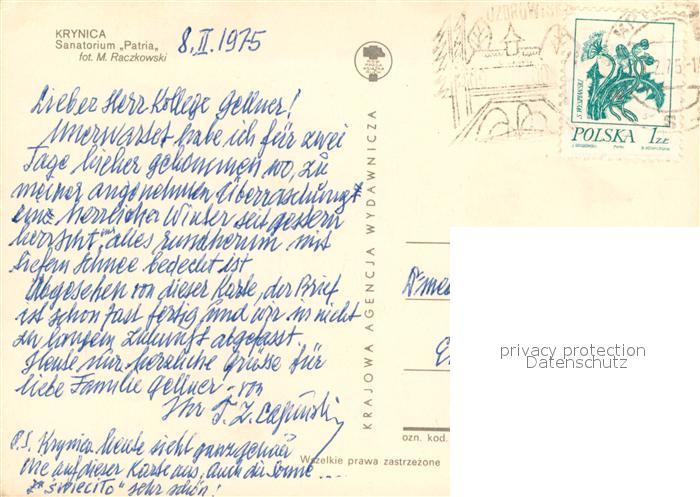 KRYNICA
Sanatorium „Patria„
fot. M. Raczkowski
8. II. 1975
Lieber Herr Kollege Gellner!
Unerwartet habe ich für zwei
Tage hieher gekommen wo, zu
meiner angenehmen Überraschung
ein herrlicher Winter seit gestern
herrscht, alles rundherum mit
tiefem Schnee bedeckt ist
Abgesehen von dieser Karte, der Brief
ist schon fast fertig und wir in nicht
zu langem Zukunft abgefasst.
Heute nur herzliche Grüsse für
liebe Familie Gellner – von
Ihr T. Z.
P.S. Krynica heute sieht ganz genau
wie auf dieser Karte aus, auch die Sonne ....
"świeciło" sehr schön!
KRAJOWA AGENCJA WYDAWNICZA
S. WYSPIAŃSKI
POLSKA 1 ZŁ
Dr med
ozn. kod.
Wszelkie prawa zastrzeżone
privacy protection
Datenschutz